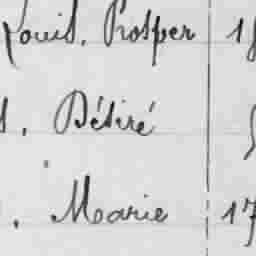 Louis, Prosper 18
, Désiré
, Marie 17